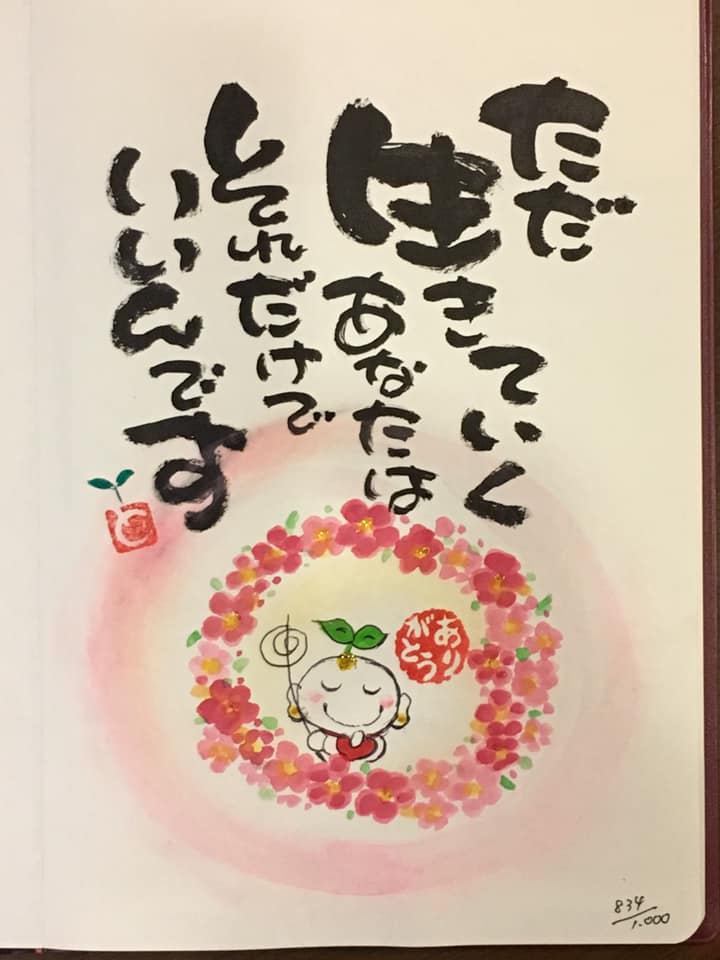 ただ
生きていく
あなたは
それだけで
いいんです
あり
がとう
834/1.000